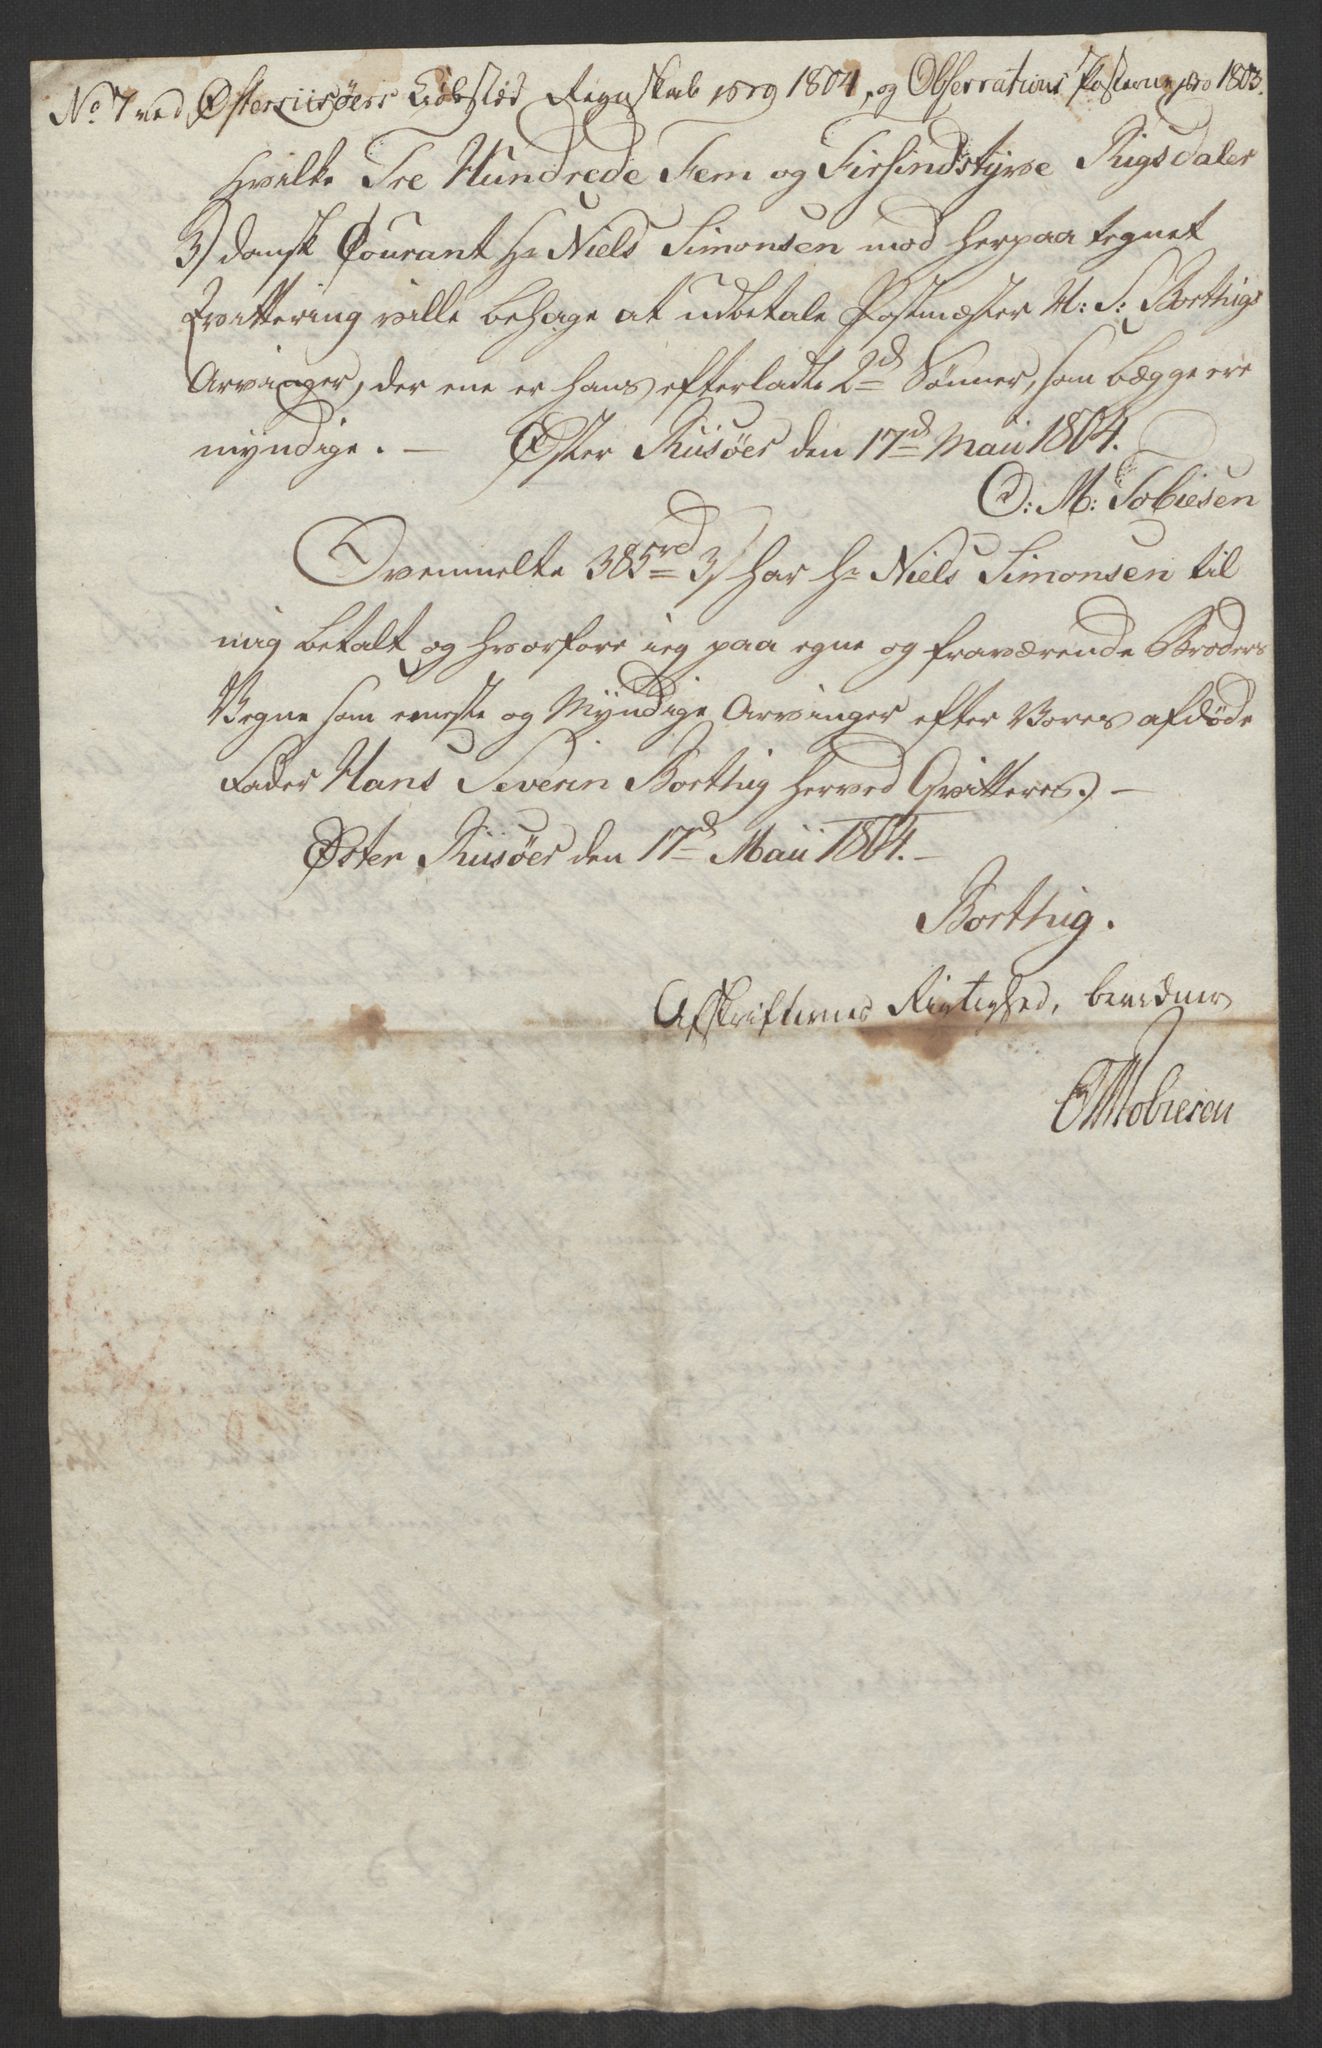 No 7 ved Østerriisøers Kiøbstæd Regnskab pro 1804, og Observations Posterne pro 1803.
hvilke Tre Hundrede Fem og Firsindstyve Rigsdaler
3/ dansk Courant Hr Niels Simonsen mod herpaa tegnet
Qvittering ville behage at udbetale Postmæster H: S: Borthigs
Arvinger, der ene er hans efterladte 2de Sønner, som begge ere
myndige. — Øster Riisøer den 17d Maii 1804.
O: M: Tobiesen
Ovenmelte 385rd 3/ har Hr Niels Simonsen til
mig betalt og hvorfore ieg paa egne og fraværende Broders
Vegne som eneste og Myndige Arvinger efter Vores afdøde
Fader Hans Severin Borthig herved Qvitteres. —
Øster Riisøer den 17d Maii 1804. —
Borthig.
Afskrifternes Rigtighed, bevidner
OMTobiesen